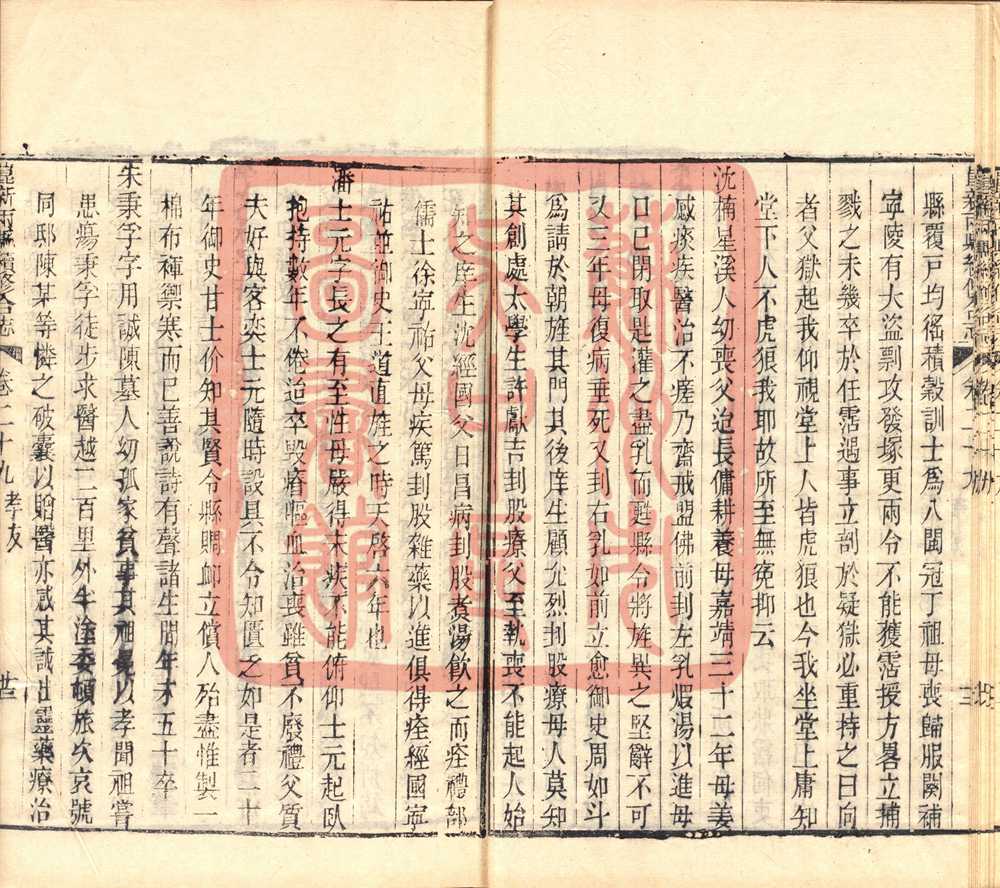 縣覆戸均徭積穀訓士爲八閩冠丁祖母喪歸服闋補
寜陵有大盜剽攻發塚更兩令不能獲霑授方畧立捕
戮之未幾卒於任霑遇事立剖於疑獄必重持之曰向
者父獄起我仰視堂上人皆虎狼也今我坐堂上庸知
堂下人不虎狼我耶故所至無寃抑云
沈楠星溪人幼喪父迨長傭耕養母嘉靖三十二年母姜
感痰疾醫治不瘥乃齋戒盟佛前刲左乳煆湯以進母
口已閉取匙灌之盡乳而甦縣令將旌異之堅辭不可
又三年母復病垂死又刲右乳如前立愈御史周如斗
爲請於朝旌其門其後庠生顧允烈刲股療母人莫知
其創處太學生許獻吉刲股療父至執喪不能起人始
知之庠生沈經國父日昌病刲股煑湯飮之而痊禮部
儒士徐寜祐父母疾篤刲股雜藥以進俱得痊經國寜
祐並御史王道直旌之時天啓六年也
潘士元字長之有至性母嚴得末疾不能俯仰士元起臥
抱持數年不倦迨卒毀瘠嘔血治喪雖貧不廢禮父質
夫好與客奕士元隨時設具不令知匱乏如是者二十
年御史甘士价知其賢令縣賙卹立償人殆盡惟製一
棉布褌禦寒而已善說詩有聲諸生間年才五十卒
朱秉孚字用誠陳墓人幼孤家貧事其祖以孝聞祖嘗
患瘍秉孚徒步求醫越二百里外半塗委頓旅次哀號
同邸陳某等憐之破囊以贈醫亦感其誠出靈藥療治
崑新兩縣續修合志 卷二十九 孝友